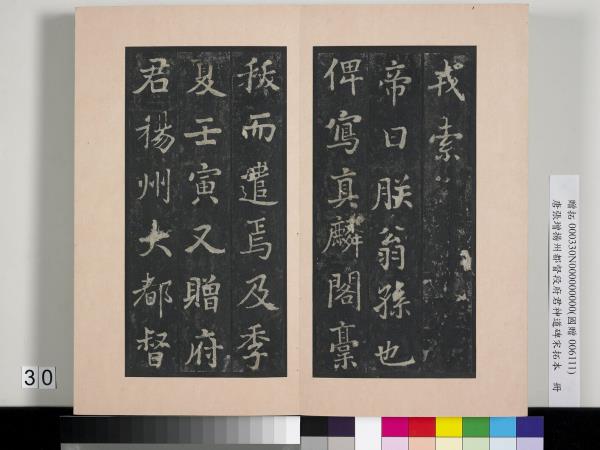 戎索
帝曰朕翁孫也
俾寫真麟閣稾
秩而遣焉及季
夏壬寅又贈府
君揚州大都督
30
贈拓 000330N000000000(國贈 006111)
唐張增揚州都督段府君神道碑宋拓本 冊